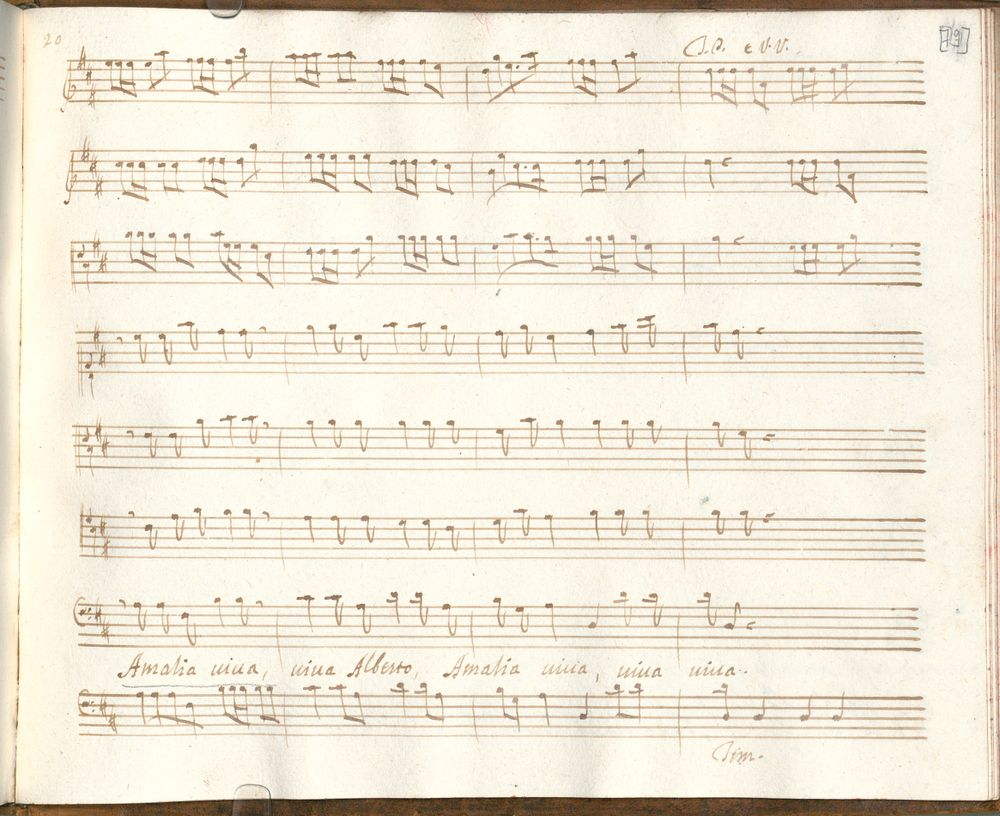 20
[79]
e V.V.
Amalia viva, viva Alberto, Amalia viva, viva viva..
Tim.